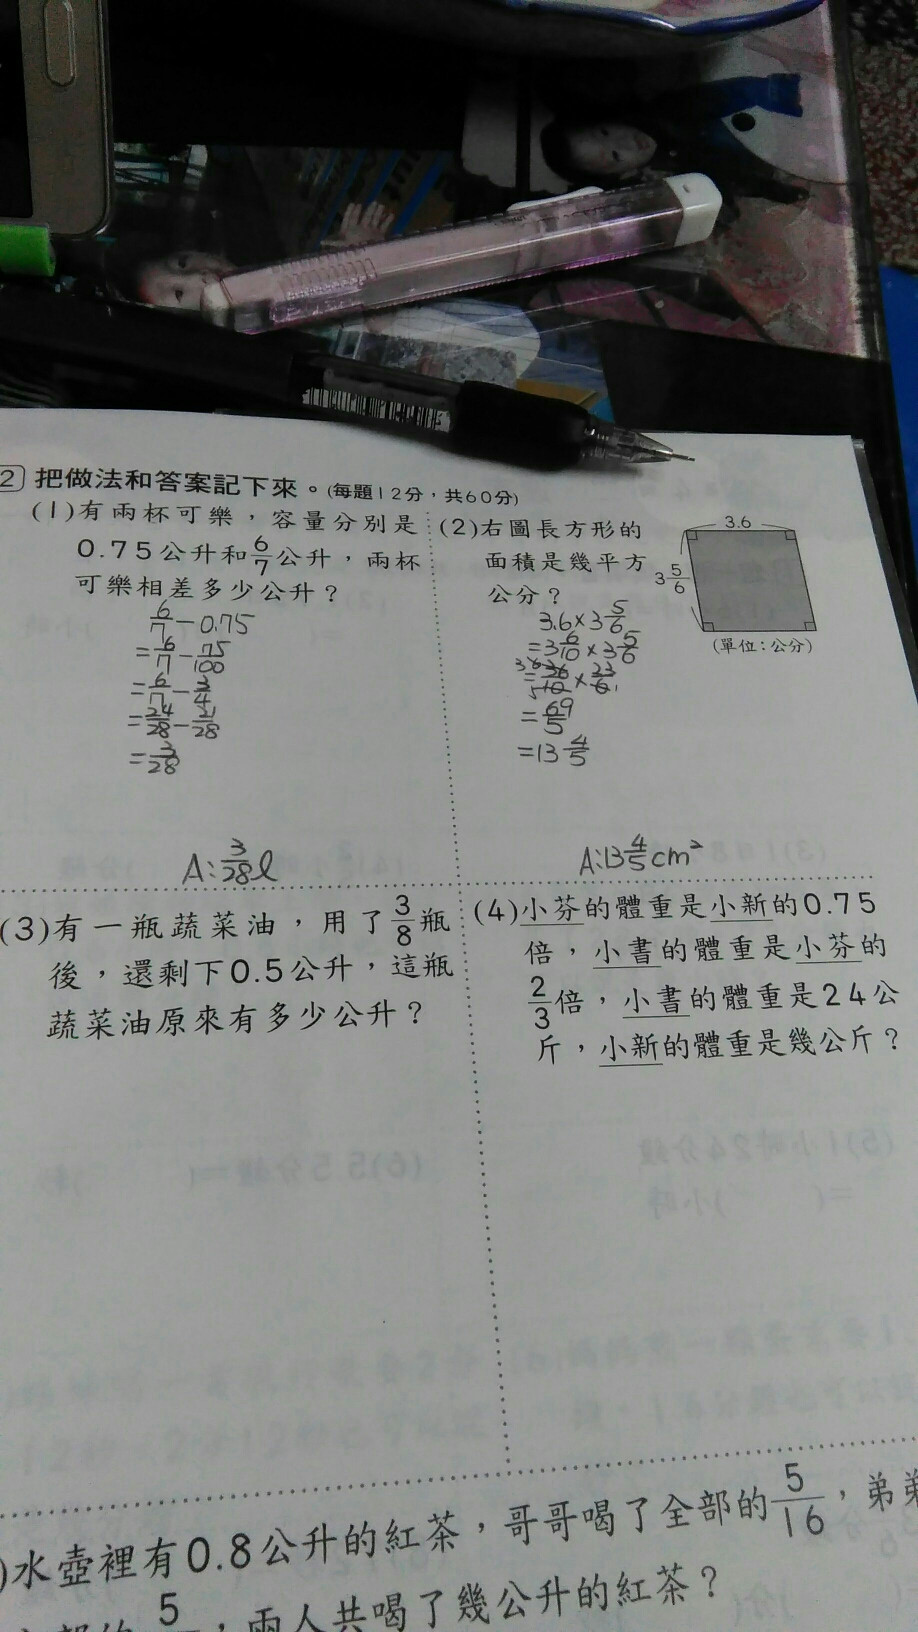 2 把做法和答案記下來。(每題12分,共60分)
(1)有兩杯可樂,容量分別是
0.75公升和6/7公升,兩杯
可樂相差多少公升?
6/7-0.75
=6/7-75/100
=6/7-3/4
=24/28-21/28
=3/28
A:3/28ℓ
(2)右圖長方形的
面積是幾平方
公分?
3.6
3 5/6
(單位:公分)
3.6×3 5/6
=3 6/10×3 5/6
=36/10×23/6
=69/5
=13 4/5
A:13 4/5cm²
(3)有一瓶蔬菜油,用了3/8瓶
後,還剩下0.5公升,這瓶
蔬菜油原來有多少公升?
(4)小芬的體重是小新的0.75
倍,小書的體重是小芬的
2/3倍,小書的體重是24公
斤,小新的體重是幾公斤?
)水壺裡有0.8公升的紅茶,哥哥喝了全部的5/16,弟弟
,兩人共喝了幾公升的紅茶?